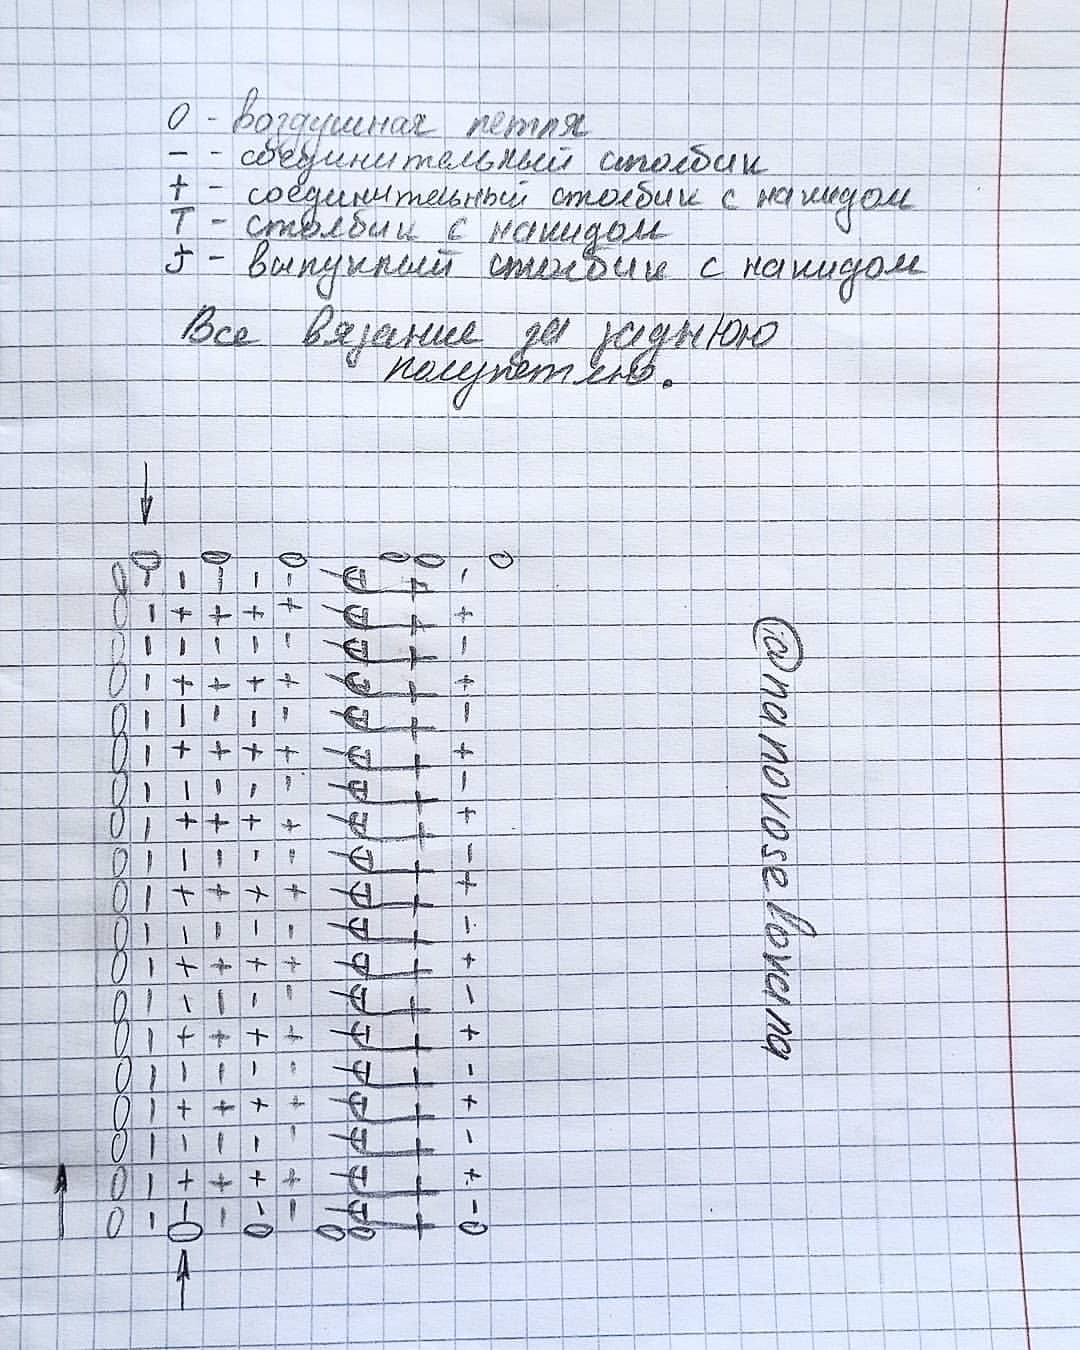 0 - воздушная петля
- - соединительный столбик
+ - соединительный столбик с накидом
T - столбик с накидом
Ŧ - выпуклый столбик с накидом
Все вязание за заднюю
полупетлю.
@nanovoselovana